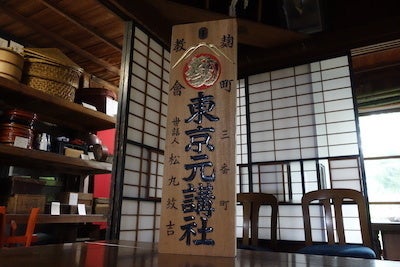 麹町三番町
教會
東京元講社
世話人 松九紋吉